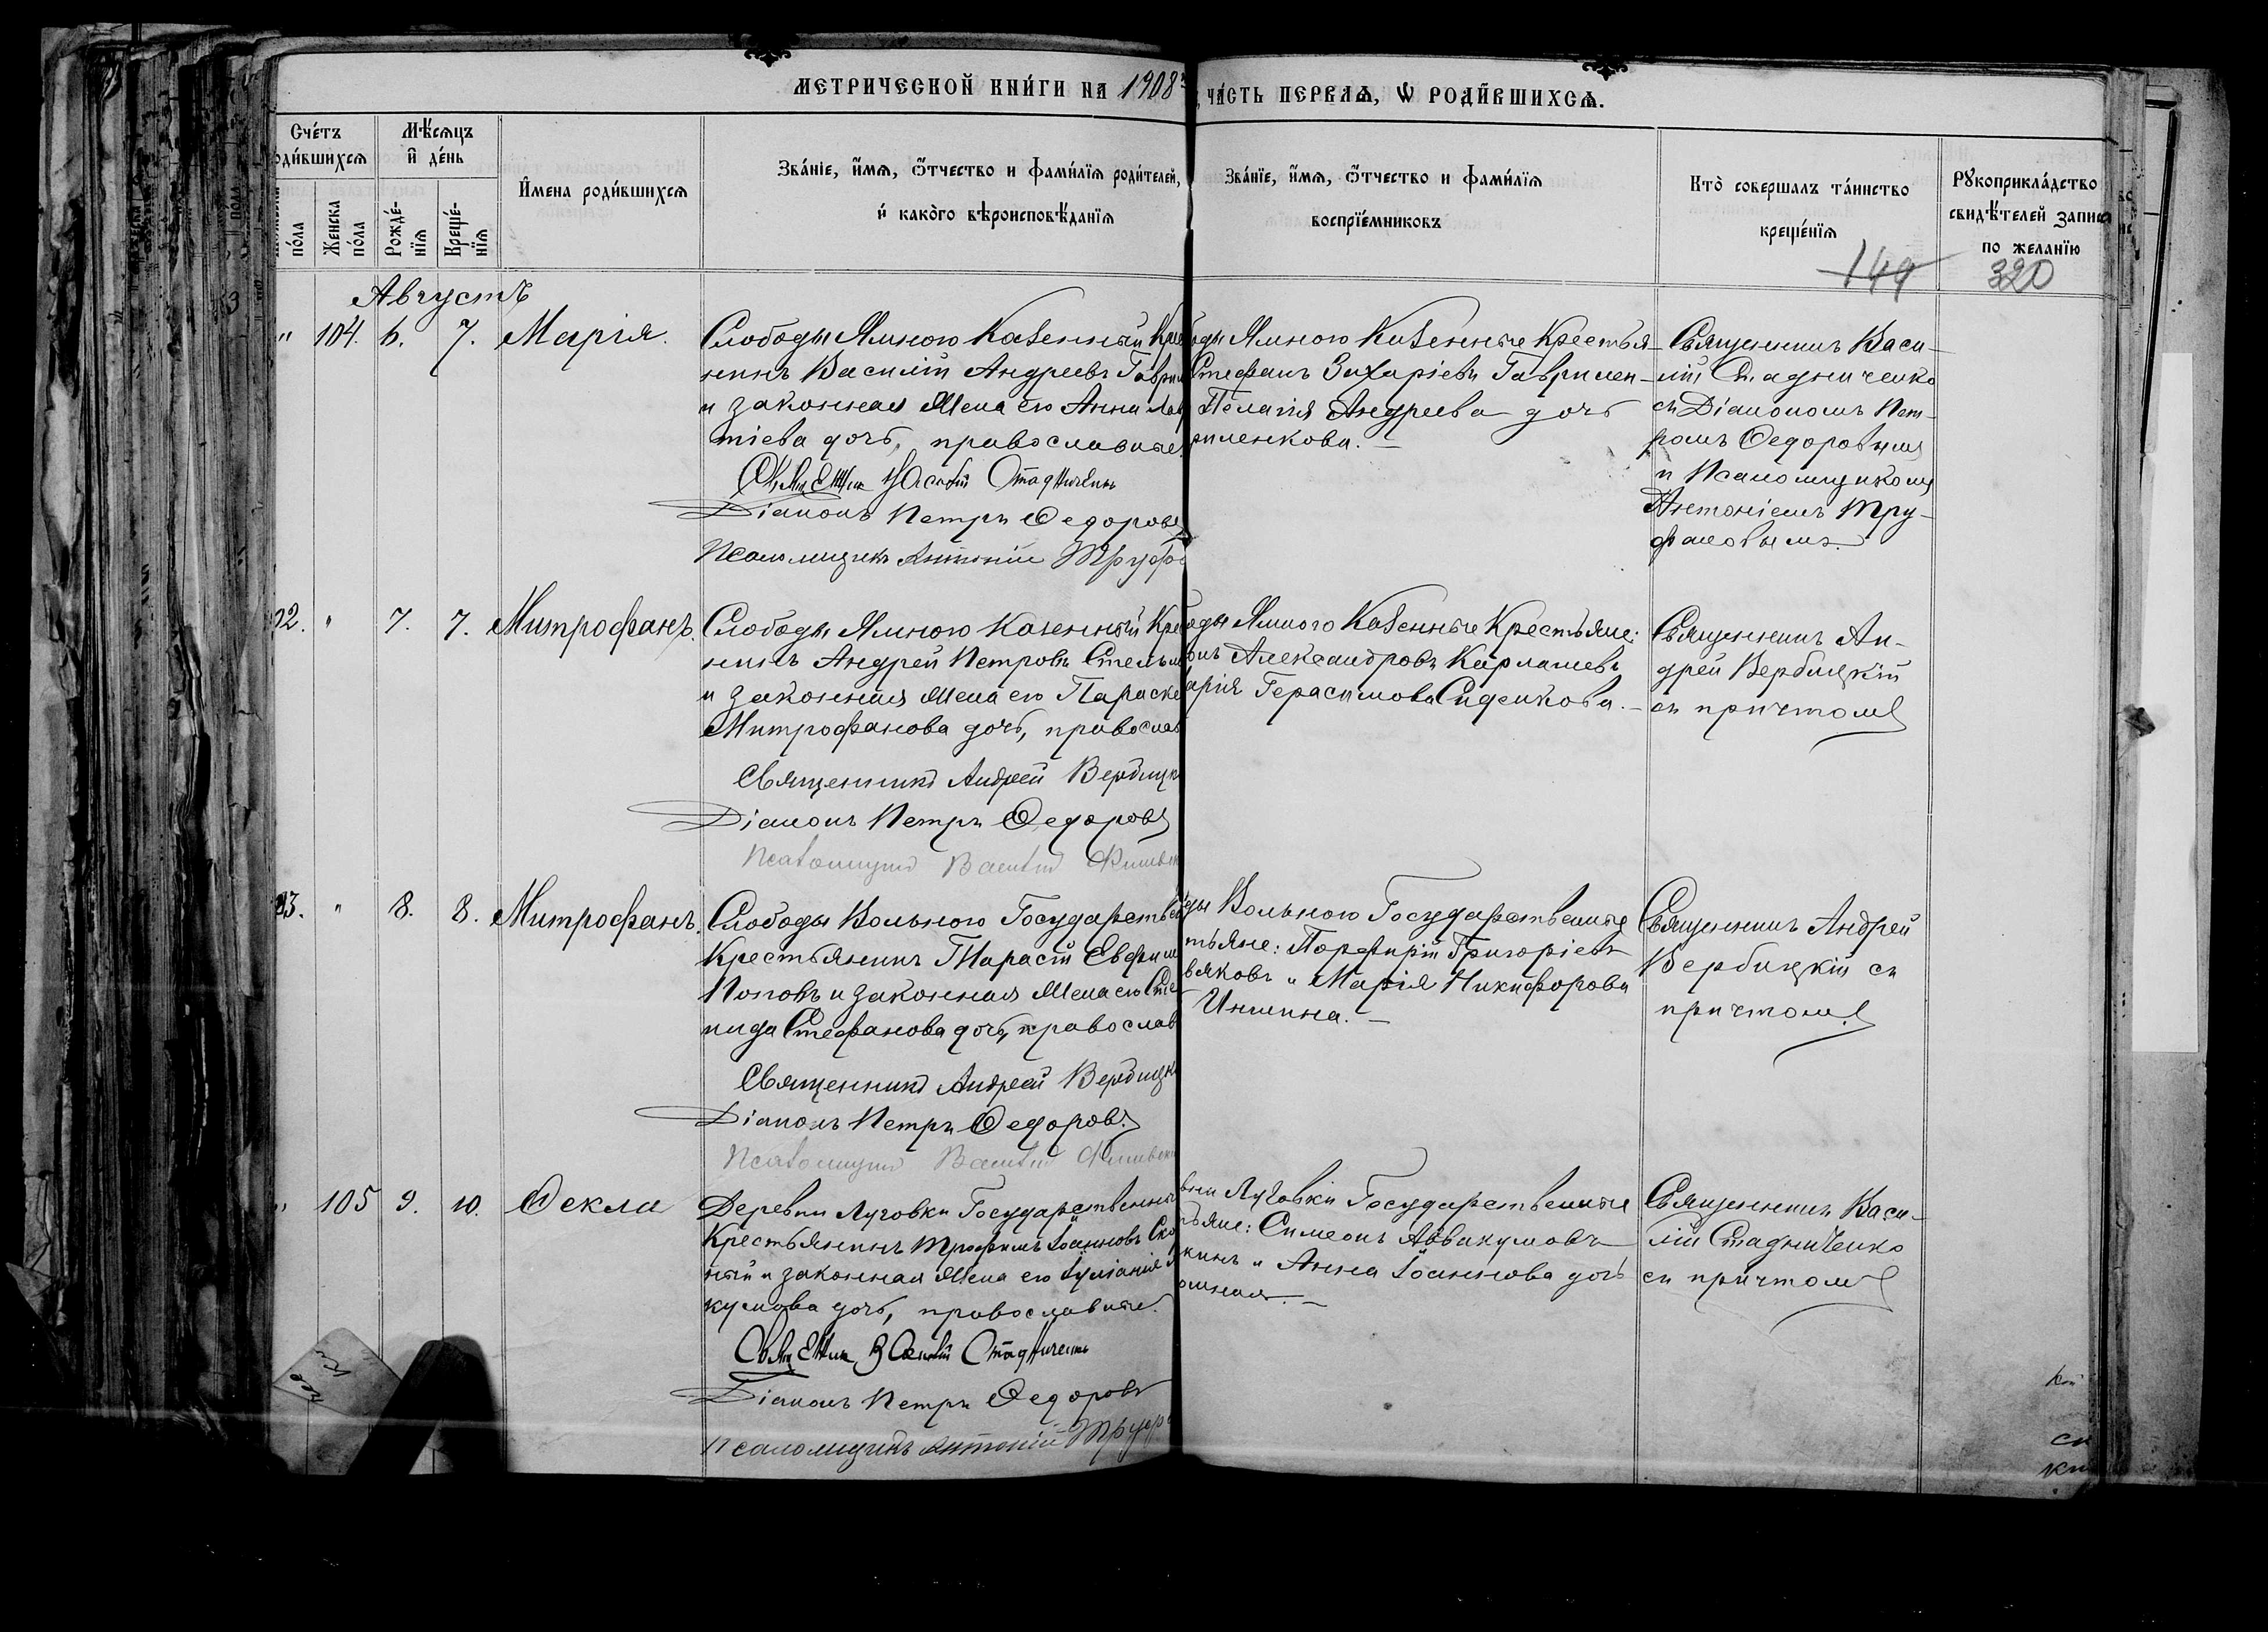 МЕТРИЧЕСКОЙ КНИ́ГИ НА 1908
ЧА́СТЬ ПЕРВАѦ, Ѡ РОДИ́ВШИХСѦ.
Сче́тъ
роди́вшихсѧ
Мѣ́сѧцъ
и҆ де́нь
И҆мена роди́вшихсѧ
Зва́нїе, и҆́мѧ, ѻ҆́тчество и фами́лїѧ роди́телей,
и҆ какогѡ вѣроисповѣ́данїѧ
Зва́нїе, и҆́мѧ, ѻ҆́тчество и фами́лїѧ
воспрїе́мниковъ
Кто̀ совершалъ та́инство
креще́нїѧ
Рꙋкоприкла́дство
свидѣ́телей записи
по желанїю
пóла
Женска
пóла
Рожде́-
нїѧ
Креще́-
нїѧ
149
320
Августъ
" 104. 6. 7. Марія.
Слободы Ямного Казенный Кре
нинъ Василій Андреевъ Гаври
и законная жена его Анна
тіева дочь, православные.
Священник Василій Стадниченко
Діаконъ Петръ Ѳедоровъ
Псаломщикъ Антоній Труф
ды Ямного Казенные Крестья-
Стефанъ Захаріевъ Гаврилен-
Пелагія Андреева дочь
риленкова.
Священникъ Васи-
лій Стадниченко
съ Діакономъ Пет-
ромъ Ѳедоровымъ
и Псаломщикомъ
Антоніемъ Тру-
фановымъ.
02. " 7. 7. Митрофанъ.
Слободы Ямного Казенный Кре
нинъ Андрей Петровъ Стельм
и законная жена его Параске
Митрофанова дочь, православ
Священникъ Андрей Вербицк
Діаконъ Петръ Ѳедоровъ
Псаломщикъ Василій
ды Ямного Казенные Крестьяне:
Александровъ Карпашевъ
арія Герасимова Сиденкова.
Священникъ Ан-
дрей Вербицкій
съ причтомъ
83. " 8. 8. Митрофанъ.
Слободы Вольного Государстве
Крестьянинъ Тарасій Евфим
Поповъ и законная жена его Сте
нида Стефанова дочь, православ
Священникъ Андрей Вербицк
Діаконъ Петръ Ѳедоровъ
Псаломщикъ Василій
ды Вольного Государственные
тьяне: Порфирій Григоріевъ
вяковъ и Марія Никифорова
Иншина.
Священникъ Андрей
Вербицкій съ
причтомъ
" 105 9. 10. Ѳекла
Деревни Луговки Государственны
Крестьянинъ Трофимъ Іоанновъ Ско
ный и законная жена его Іуліанія
кумова дочь, православные.
Священник Василій Стадниченко
Діаконъ Петръ Ѳедоровъ
Псаломщикъ Антоній Труф
вни Луговки Государственные
тьяне: Симеонъ Аввакумовъ
кинъ и Анна Іоаннова дочь
Священникъ Васи-
лій Стадниченко
съ причтомъ